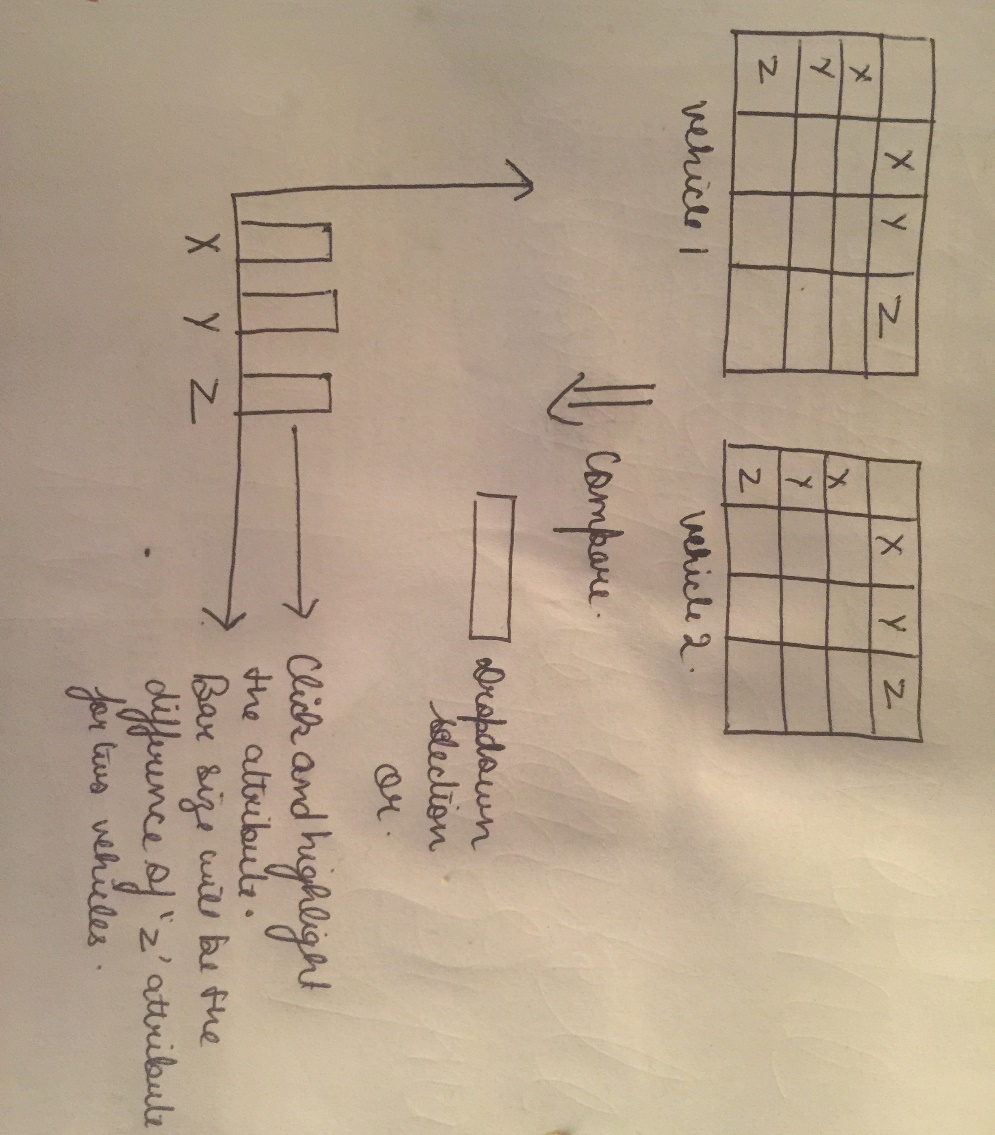 X Y Z
X
Y
Z
vehicle 1
X Y Z
X
Y
Z
vehicle 2.
Compare.
Dropdown
selection
or.
Click and highlight
the attribute.
Bar size will be the
difference of 'z' attribute
for two vehicles.
X Y Z